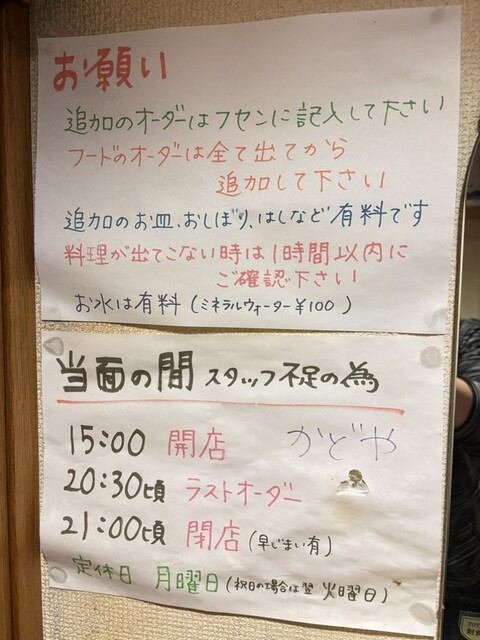 お願い
追加のオーダーはフセンに記入して下さい
フードのオーダーは全て出てから
追加して下さい
追加のお皿、おしぼり、はしなど有料です
料理が出てこない時は1時間以内に
ご確認下さい
お水は有料(ミネラルウォーター¥100)
当面の間 スタッフ不足の為
15:00 開店 かどや
20:30頃 ラストオーダー
21:00頃 閉店(早じまい有)
定休日 月曜日(祝日の場合は翌 火曜日)